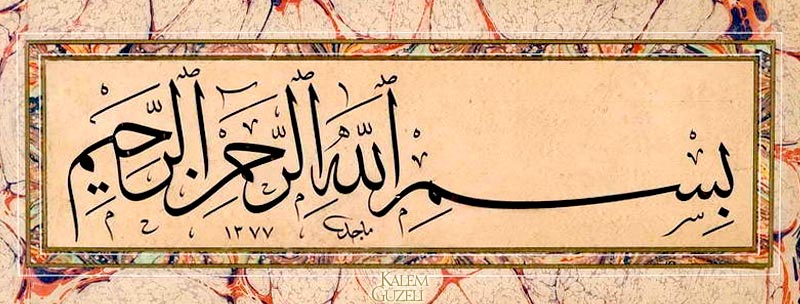 بِسْمِ اللّٰهِ الرَّحْمٰنِ الرَّحِيمِ
ماجد ١٣٧٧
KALEM
GÜZELİ